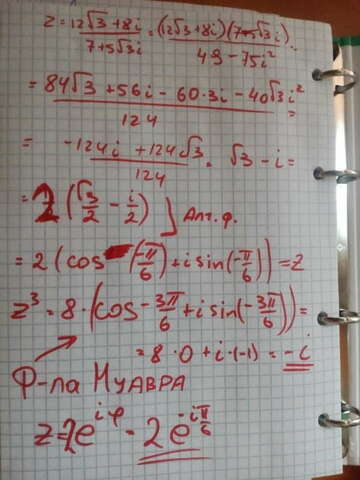 z = 12√3 + 8i / 7 + 5√3i = (12√3 + 8i)(7 - 5√3i) / 49 - 75i² =
= 84√3 + 56i - 60·3i - 40√3i² / 124 =
= -124i + 124√3 / 124 = √3 - i =
= 2 (√3/2 - i/2) ] Алг. ф.
= 2 (cos (-π/6) + i sin(-π/6)) = z
z³ = 8 · (cos -3π/6 + i sin(-3π/6)) =
= 8 · 0 + i·(-1) = -i
Ф-ла Муавра
z = 2e^iφ = 2e^-iπ/6